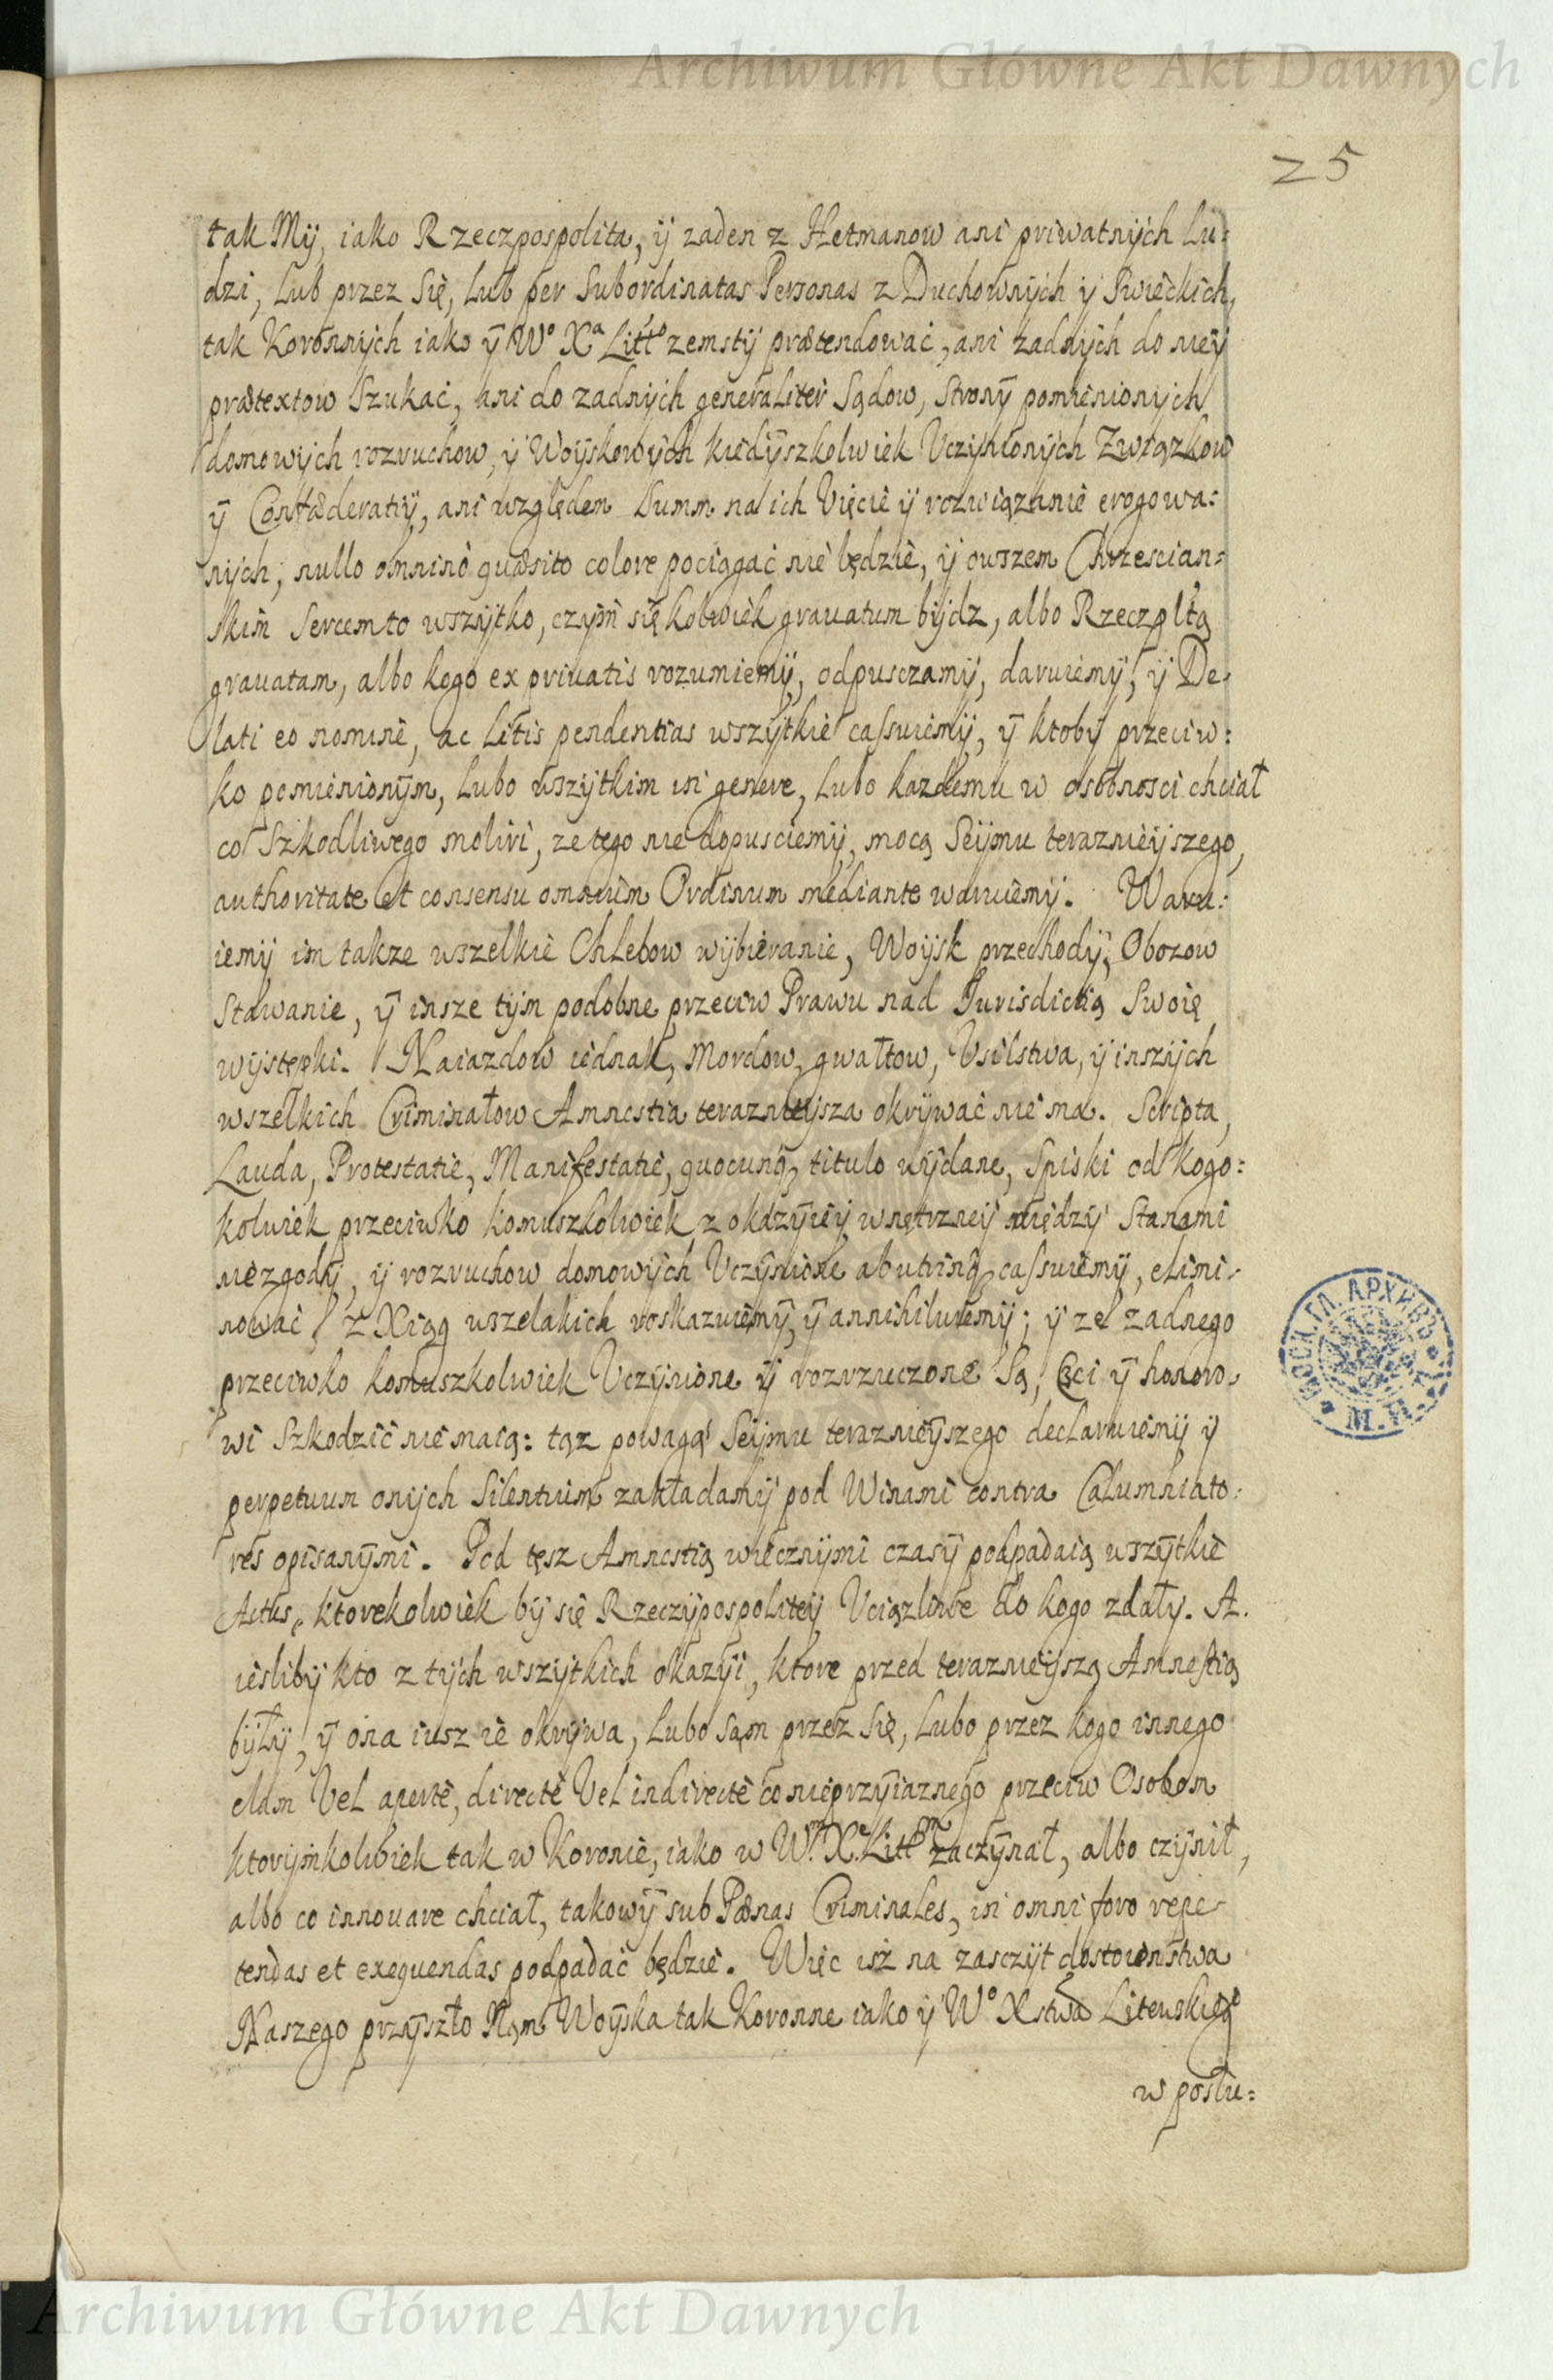 Archiwum Główne Akt Dawnych
25
tak Mÿ, iako Rzeczpospolita, ÿ zaden z Hetmanow ani priwatnÿch Lu:
dzi, Lub przez Się, Lub per Subordinatas Personas z Duchownÿch ÿ Swieckich,
tak Koronnÿch iako ÿ Wº Xª Littº zemstÿ prætendowac, ani zadnÿch do neÿ
prætextow Szukać, ani do zadnÿch generaliter Sądow, Stronÿ pomienionÿch
domowÿch rozruchow, ÿ Woÿskowÿch kiedÿszkolwiek Vczÿnionÿch Związkow
ÿ Confœderatiÿ, ani względem Summ na ich Vięcie ÿ rozwiązanie erogowa:
nÿch, nullo omninò quæsito colore pociągać nie będzie, ÿ owszem Chrzescian:
skim Sercem to wszÿtko, czÿm się kolwiek grauatum bÿdz, albo Rzeczpltą
grauatam, albo kogo ex priuatis rozumiemÿ, odpusczamÿ, daruiemÿ, ÿ De
lati eo nomine, ac Litis pendentias wszÿtkie cassuiemÿ, ÿ ktobÿ przeciw:
ko pomienionÿm, Lubo wszÿtkim in genere, Lubo kazdemu w osobnosci chciał
co Szkodliwego moliri, ze tego nie dopusciemÿ, mocą Seÿmu teraznieÿszego,
authoritate et consensu omnium Ordinum mediante waruiemÿ. Waru:
iemÿ im takze wszelkie Chlebow wÿbieranie, Woÿsk przechodÿ, Obozow
Stawanie, ÿ insze tÿm podobne przeciw Prawu nad Jurisdictią Swoię
wÿstępki. Naiazdow iednak, Mordow, gwałtow, Vsilstwa, ÿ inszÿch
wszelkich Criminałow Amnestia teraznieÿsza okrÿwać nie ma. Scripta,
Lauda, Protestatie, Manifestatie, quocunq; titulo wÿdane, Spiski od kogo:
kolwiek przeciwko komuszkolwiek z okazÿieÿ wnętrzneÿ międzÿ Stanami
niezgodÿ, ÿ rozruchow domowÿch Vczÿnione ab utrinq; cassuiemÿ, elimi
nować z Xiąg wszelakich roskazuiemÿ, ÿ annihiluiemÿ; ÿ ze zadnego
przeciwko komuszkolwiek Vczÿnione ÿ rozrzuczone Są, Czci ÿ honoro
wi Szkodzić nie maią: tąz powagą Seÿmu teraznieÿszego declaruiemÿ ÿ
perpetuum onÿch Silentium zakładamÿ pod Winami contra Calumniato:
res opisanÿmi. Pod tęsz Amnestią wiecznÿmi czasÿ podpadaią wszÿtkie
Actus, ktorekolwiek bÿ się Rzeczÿpospoliteÿ Vciązliwe do kogo zdałÿ. A
ieslibÿ kto z tÿch wszÿtkich okazÿi, ktore przed teraznieÿszą Amnestią
bÿłÿ, ÿ ona iusz ie okrÿwa, Lubo sąm przez Się, Lubo przez kogo innego
clam Vel apertè, directè Vel indirectè co nieprzÿiaznego przeciw Osobom
ktorÿmkolwiek tak w Koronie, iako w Wᵐ. Xᵉ. Littᵐ zaczÿnał, albo czÿnił,
albo co innouare chciał, takowÿ sub Pœnas Criminales, in omni foro repe
tendas et exequendas podpadać będzie. Więc isz na zasczÿt dostoienstwa
Naszego przÿszło Nąm Woÿska tak Koronne iako ÿ Wº Xstwa Litewskiego
w posłu:
МОСК. ГЛ. АРХИВЪ М.И.Д.
Archiwum Główne Akt Dawnych